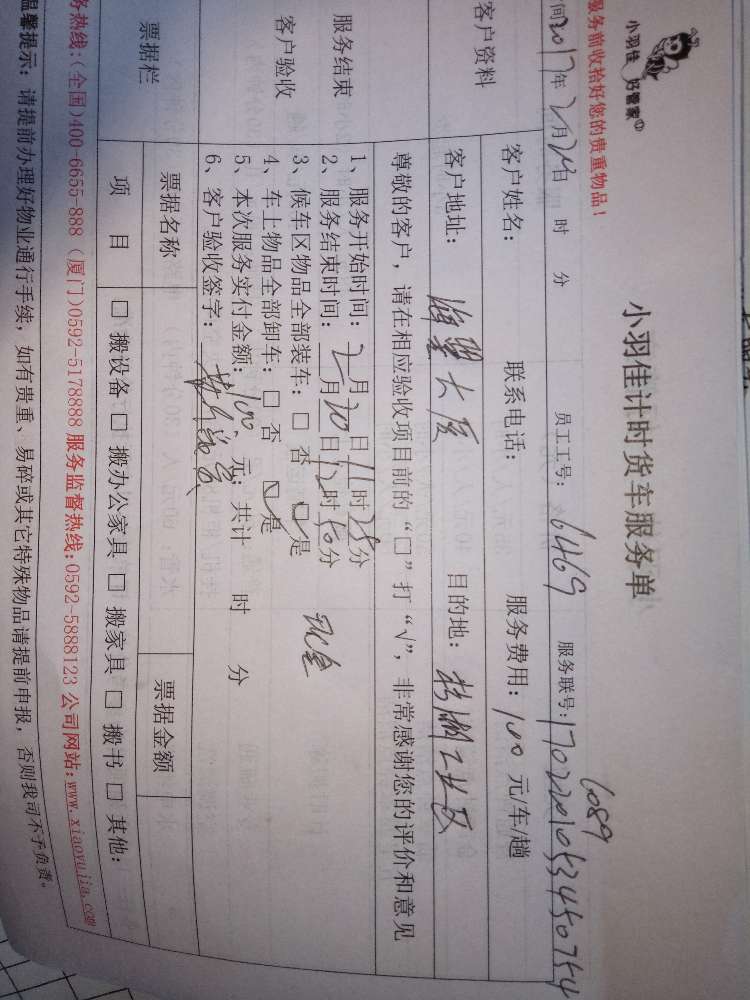 小羽佳 好管家
服务前收拾好您的贵重物品!
小羽佳计时货车服务单
间2017年2月20日 时 分 员工工号: 6469 服务联号: 170220105345075
6089
客户资料
客户姓名: 联系电话: 服务费用: 100 元/车/趟
客户地址: 海翼大厦 目的地: 工业区
尊敬的客户，请在相应验收项目前的“□”打“√”，非常感谢您的评价和意见
服务结束
客户验收
1、服务开始时间: 2月20日11时25分
2、服务结束时间: 日12时10分
3、候车区物品全部装车: □ 否 ☑是 现金
4、车上物品全部卸车: □ 否 ☑是
5、本次服务实付金额: 100 元; 共计 时 分
6、客户验收签字:
票据栏 票据名称 票据金额
项 目 □ 搬设备 □ 搬办公家具 □ 搬家具 □ 搬书 □ 其他:
务热线:(全国)400-6655-888 (厦门)0592-5178888 服务监督热线:0592-5888123 公司网站:www.xiaoyujia.com
温馨提示: 请提前办理好物业通行手续，如有贵重、易碎或其它特殊物品请提前申报，否则我司不予负责。